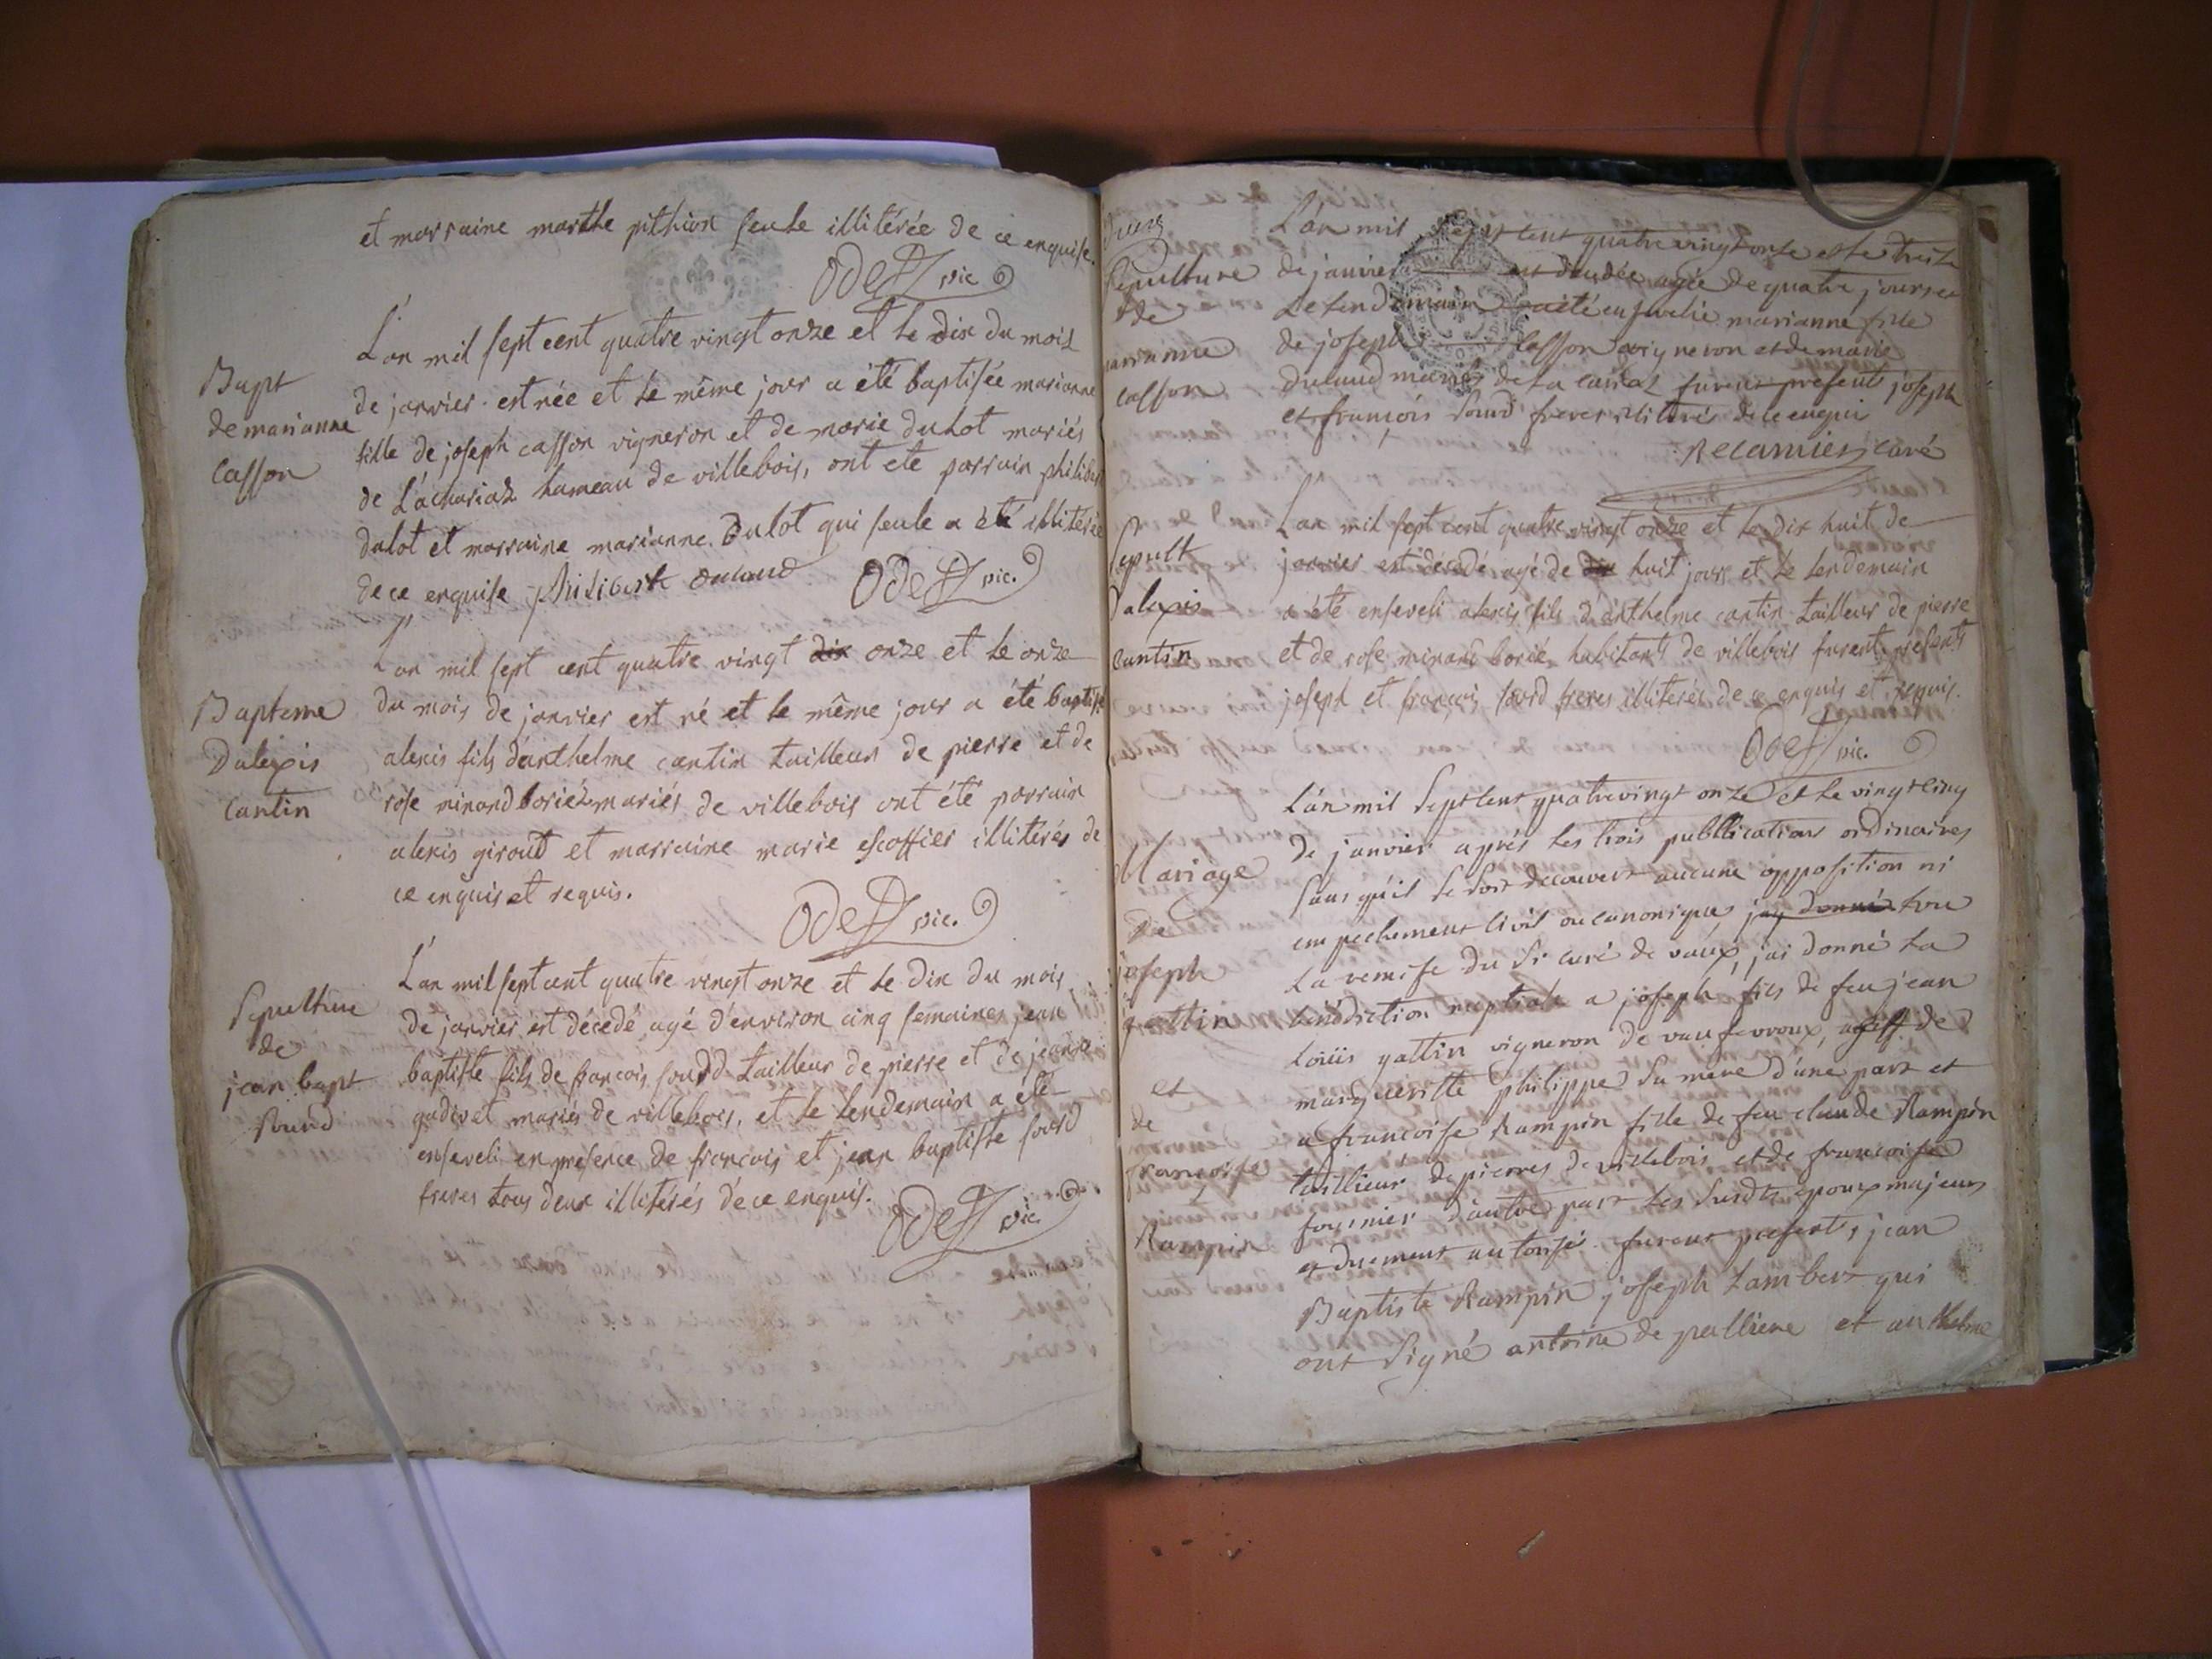 et marraine marthe pithion seule illitérée de ce enquise.
Odet vic
Bapt
de marianne
Casson
L'an mil sept cent quatre vingt onze et le dix du mois
de janvier est née et le même jour a été baptisée marianne
fille de joseph casson vigneron et de marie dulot mariés
de hameau de villebois, ont eté parrain philibert
dulot et marraine marianne Dulot qui seule a été illitérée
de ce enquise philibert
Odet vic.
Bapteme
Dalexis
Cantin
L'an mil sept cent quatre vingt dix onze et le onze
du mois de janvier est né et le même jour a été baptisé
alexis fils danthelme cantin tailleur de pierre et de
rose minand mariés de villebois ont été parrain
alexis giroud et marraine marie escoffier illitérés de
ce enquis et requis.
Odet vic.
Sepulture
de
jean bapt
Sourd
L'an mil sept cent quatre vingt onze et le dix du mois
de janvier est décedé agé d'environ cinq semaines jean
baptiste fils de francois sourd tailleur de pierre et de jeanne
mariés de villebois, et le lendemain a été
enseveli en présence de francois et jean baptiste sourd
freres tous deux illitérés de ce enquis.
Odet vic.
Sepulture
de
marianne
casson
L'an mil sept cent quatre vingt onze et le treize
de janvier est décedée agée de quatre jours et
le lendemain a été ensevelie marianne fille
de joseph casson vigneron et de marie
mariés de furent presents joseph
et françois sourd freres illiterés de ce enquis
Recamier curé
Sepult
Dalexis
Cantin
L'an mil sept cent quatre vingt onze et le dix huit de
janvier est décedé agé de dix huit jours et le lendemain
a été enseveli alexis fils d'anthelme cantin tailleur de pierre
et de rose minand borié habitants de villebois furent presents
joseph et françois sourd freres illiterés de ce enquis et requis.
Odet vic.
Mariage
De
joseph
gattin
et
de
francoise
Rampin
L'an mil sept cent quatre vingt onze et le vingt cinq
de janvier après les trois publications ordinaires
sans qu'il se soit decouvert aucune opposition ni
empechement civil ou canonique j'ay donné vu
la remise du Sr curé de vaux, j'ai donné la
bénédiction nuptiale a joseph fils de feu jean
Loüis gattin vigneron de et de
margueritte philippe sa mere d'une part et
a francoise Rampin fille de feu claude Rampin
taillieur de pierres de villebois et de francoise
fournier d'autre part les susdts epoux majeurs
et duement autorisés furent presents, jean
Baptiste Rampin joseph Lambert qui
ont signé antoine de palliere et anthelme